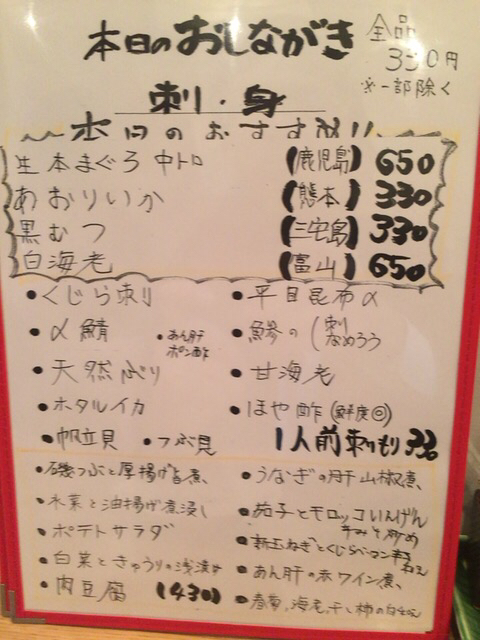 本日のおしながき
全品
330円
※一部除く
刺・身
本日のおすすめ!!
生本まぐろ中トロ 【鹿児島】 650
あおりいか 【熊本】 330
黒むつ 【三宅島】 330
白海老 【富山】 650
•くじら刺り
•平目昆布〆
•〆鯖
•あん肝ポン酢
•鯵の(刺 なめろう
•天然ぶり
•甘海老
•ホタルイカ
•ほや酢(鮮度◎)
•帆立貝 •つぶ貝
1人前刺りもり
•磯つぶと厚揚げ旨煮
•うなぎの肝山椒煮
•水菜と油揚げ煮浸し
•茄子とモロッコいんげん
辛みそ炒め
•ポテトサラダ
•新玉ねぎとくじらベーコン
•白菜ときゅうりの浅漬け
•あん肝の赤ワイン煮
•肉豆腐 (430)
•春菊、海老、干し柿の白和え